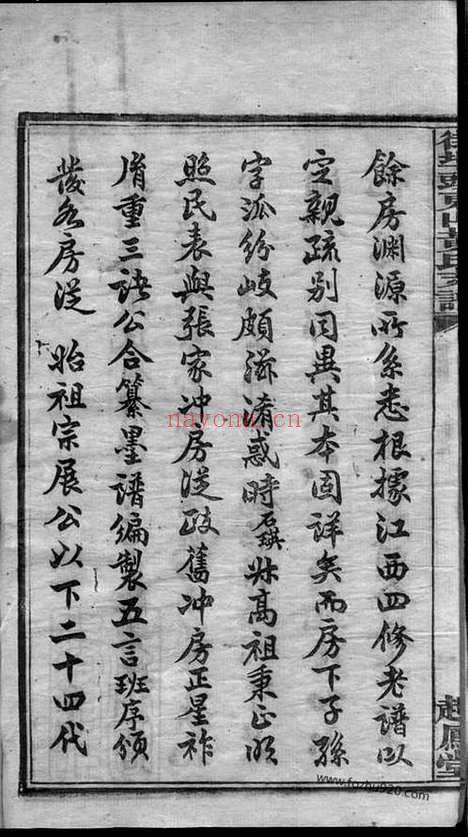 餘房渊源所系悉根據江西四修老譜以
定親疏别同異其本固詳矣而房下子孫
字派紛岐頗滋淆惑時高祖秉正昭
照民表與張家冲房從政舊冲房正星祚
重三諸公合纂墨譜編製五言班序頒
發各房從始祖宗展公以下二十四代
東山
氏支譜
趙鳳堂
nayona.cn
www.fozhu920.com